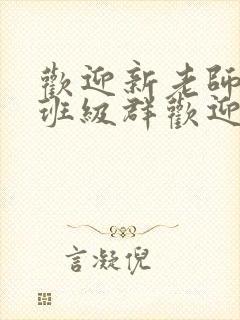 歡迎新老師
班級群歡迎
言凝倪